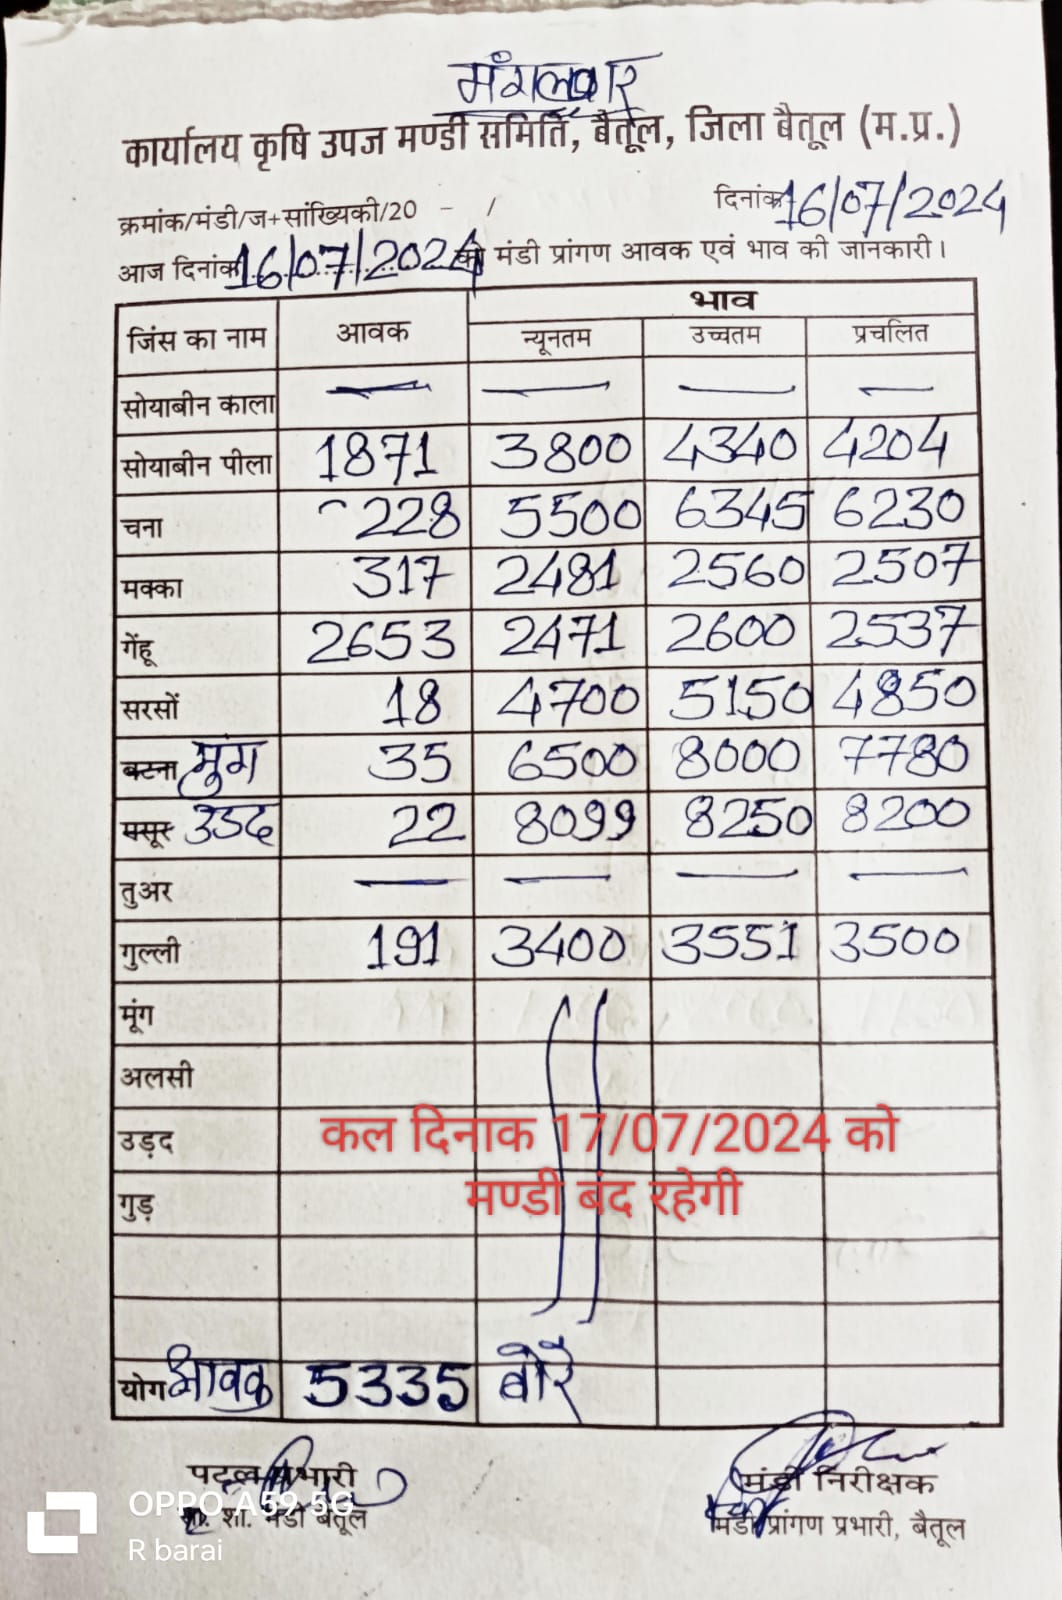 मंगलवार
कार्यालय कृषि उपज मण्डी समिति, बैतूल, जिला बैतूल (म.प्र.)
क्रमांक/मंडी/ज+सांख्यिकी/20 - /
दिनांक 16/07/2024
आज दिनांक 16/07/2024 को मंडी प्रांगण आवक एवं भाव की जानकारी।
जिंस का नाम आवक भाव
न्यूनतम उच्चतम प्रचलित
सोयाबीन काला — — — —
सोयाबीन पीला 1871 3800 4340 4204
चना 228 5500 6345 6230
मक्का 317 2481 2560 2507
गेंहू 2653 2471 2600 2537
सरसों 18 4700 5150 4850
बटना मुंग 35 6500 8000 7780
मसूर उडद 22 8099 8250 8200
तुअर — — — —
गुल्ली 191 3400 3551 3500
मूंग
अलसी
उड़द
गुड़
कल दिनाक 17/07/2024 को
मण्डी बंद रहेगी
योग आवक 5335 बोरे
पटल प्रभारी
शा. मंडी बैतूल
मंडी निरीक्षक
मंडी प्रांगण प्रभारी, बैतूल
OPPO A59 5G
R barai